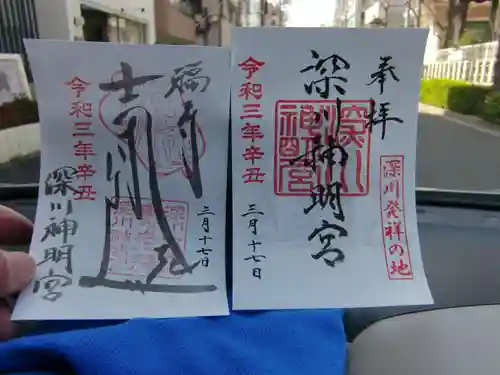 奉拝
深川神明宮
深川神明宮
深川発祥の地
令和三年辛丑
三月十七日
令和三年辛丑
三月十七日
深川神明宮